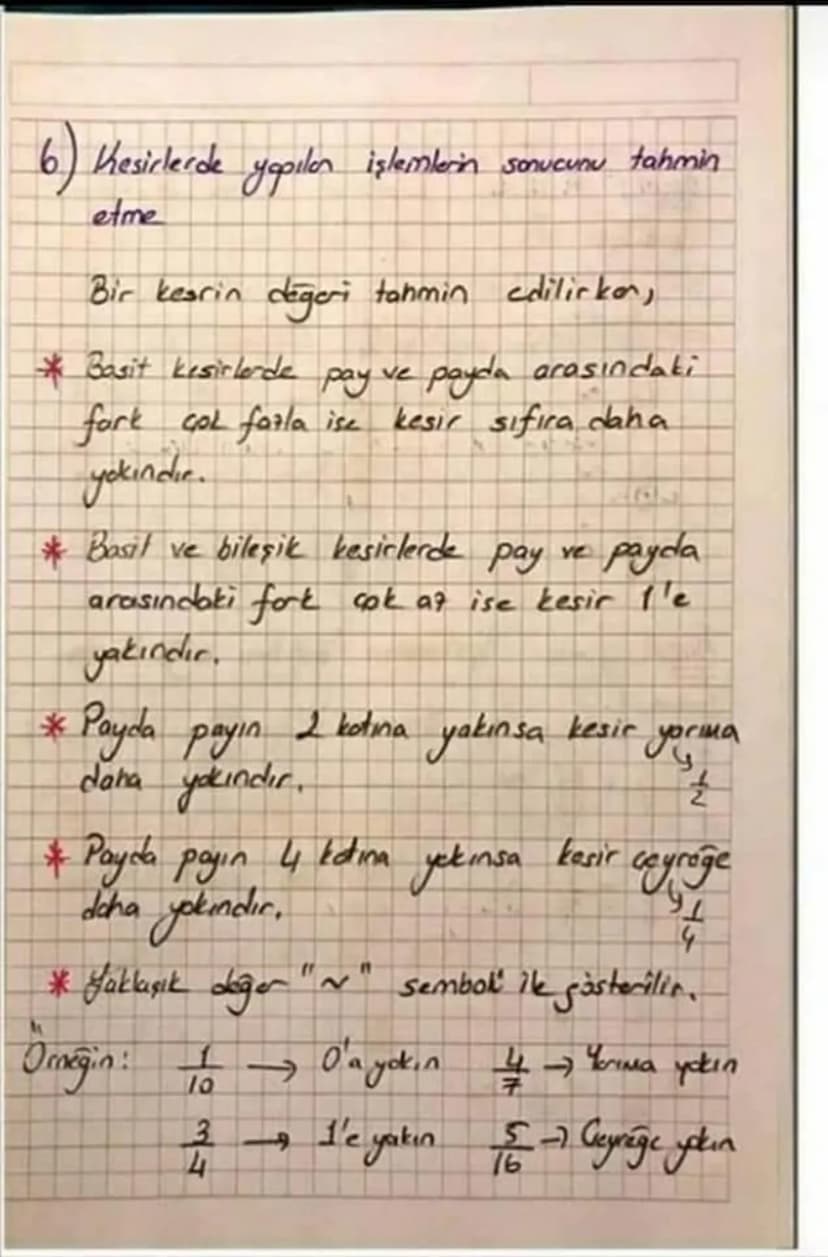 6) Kesirlerde yapılan işlemlerin sonucunu tahmin
etme
Bir kesrin değeri tahmin edilirken,
* Basit kesirlerde pay ve payda arasındaki
fark çok fazla ise kesir sıfıra daha
yakındır.
* Basit ve bileşik kesirlerde pay ve payda
arasındaki fark çok az ise kesir 1'e
yakındır.
* Payda payın 2 katına yakınsa kesir yarıma
daha yakındır. 1/2
* Payda payın 4 katına yakınsa kesir çeyreğe
daha yakındır. 1/4
* Yaklaşık değer "~" sembolü ile gösterilir.
Örneğin: 1/10 → 0'a yakın 4/7 → Yarıma yakın
3/4 → 1'e yakın 5/16 → Çeyreğe yakın